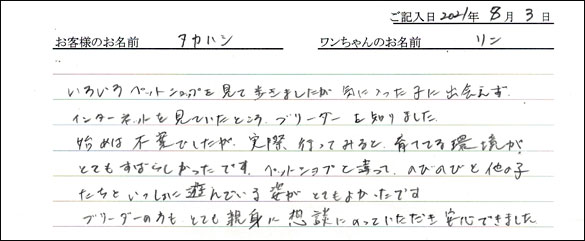 ご記入日 2021年 8月 3日
お客様のお名前 タカハシ ワンちゃんのお名前 リン
いろいろペットショップを見て歩きましたが 気に入った子に出会えず、
インターネットを見ていたところ、ブリーダーを知りました。
始めは不安でしたが、実際行ってみると、育ててる環境が
とてもすばらしかったです。ペットショップと違って、のびのびと他の子
たちといっしょに遊んでいる姿がとてもよかったです
ブリーダーの方もとても親身に想談にのっていただき安心できました